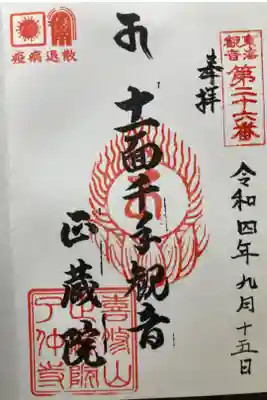 東海
観音
第二十六番
奉拝
令和四年九月十五日
十一面千手観音
正蔵院
疫病退散